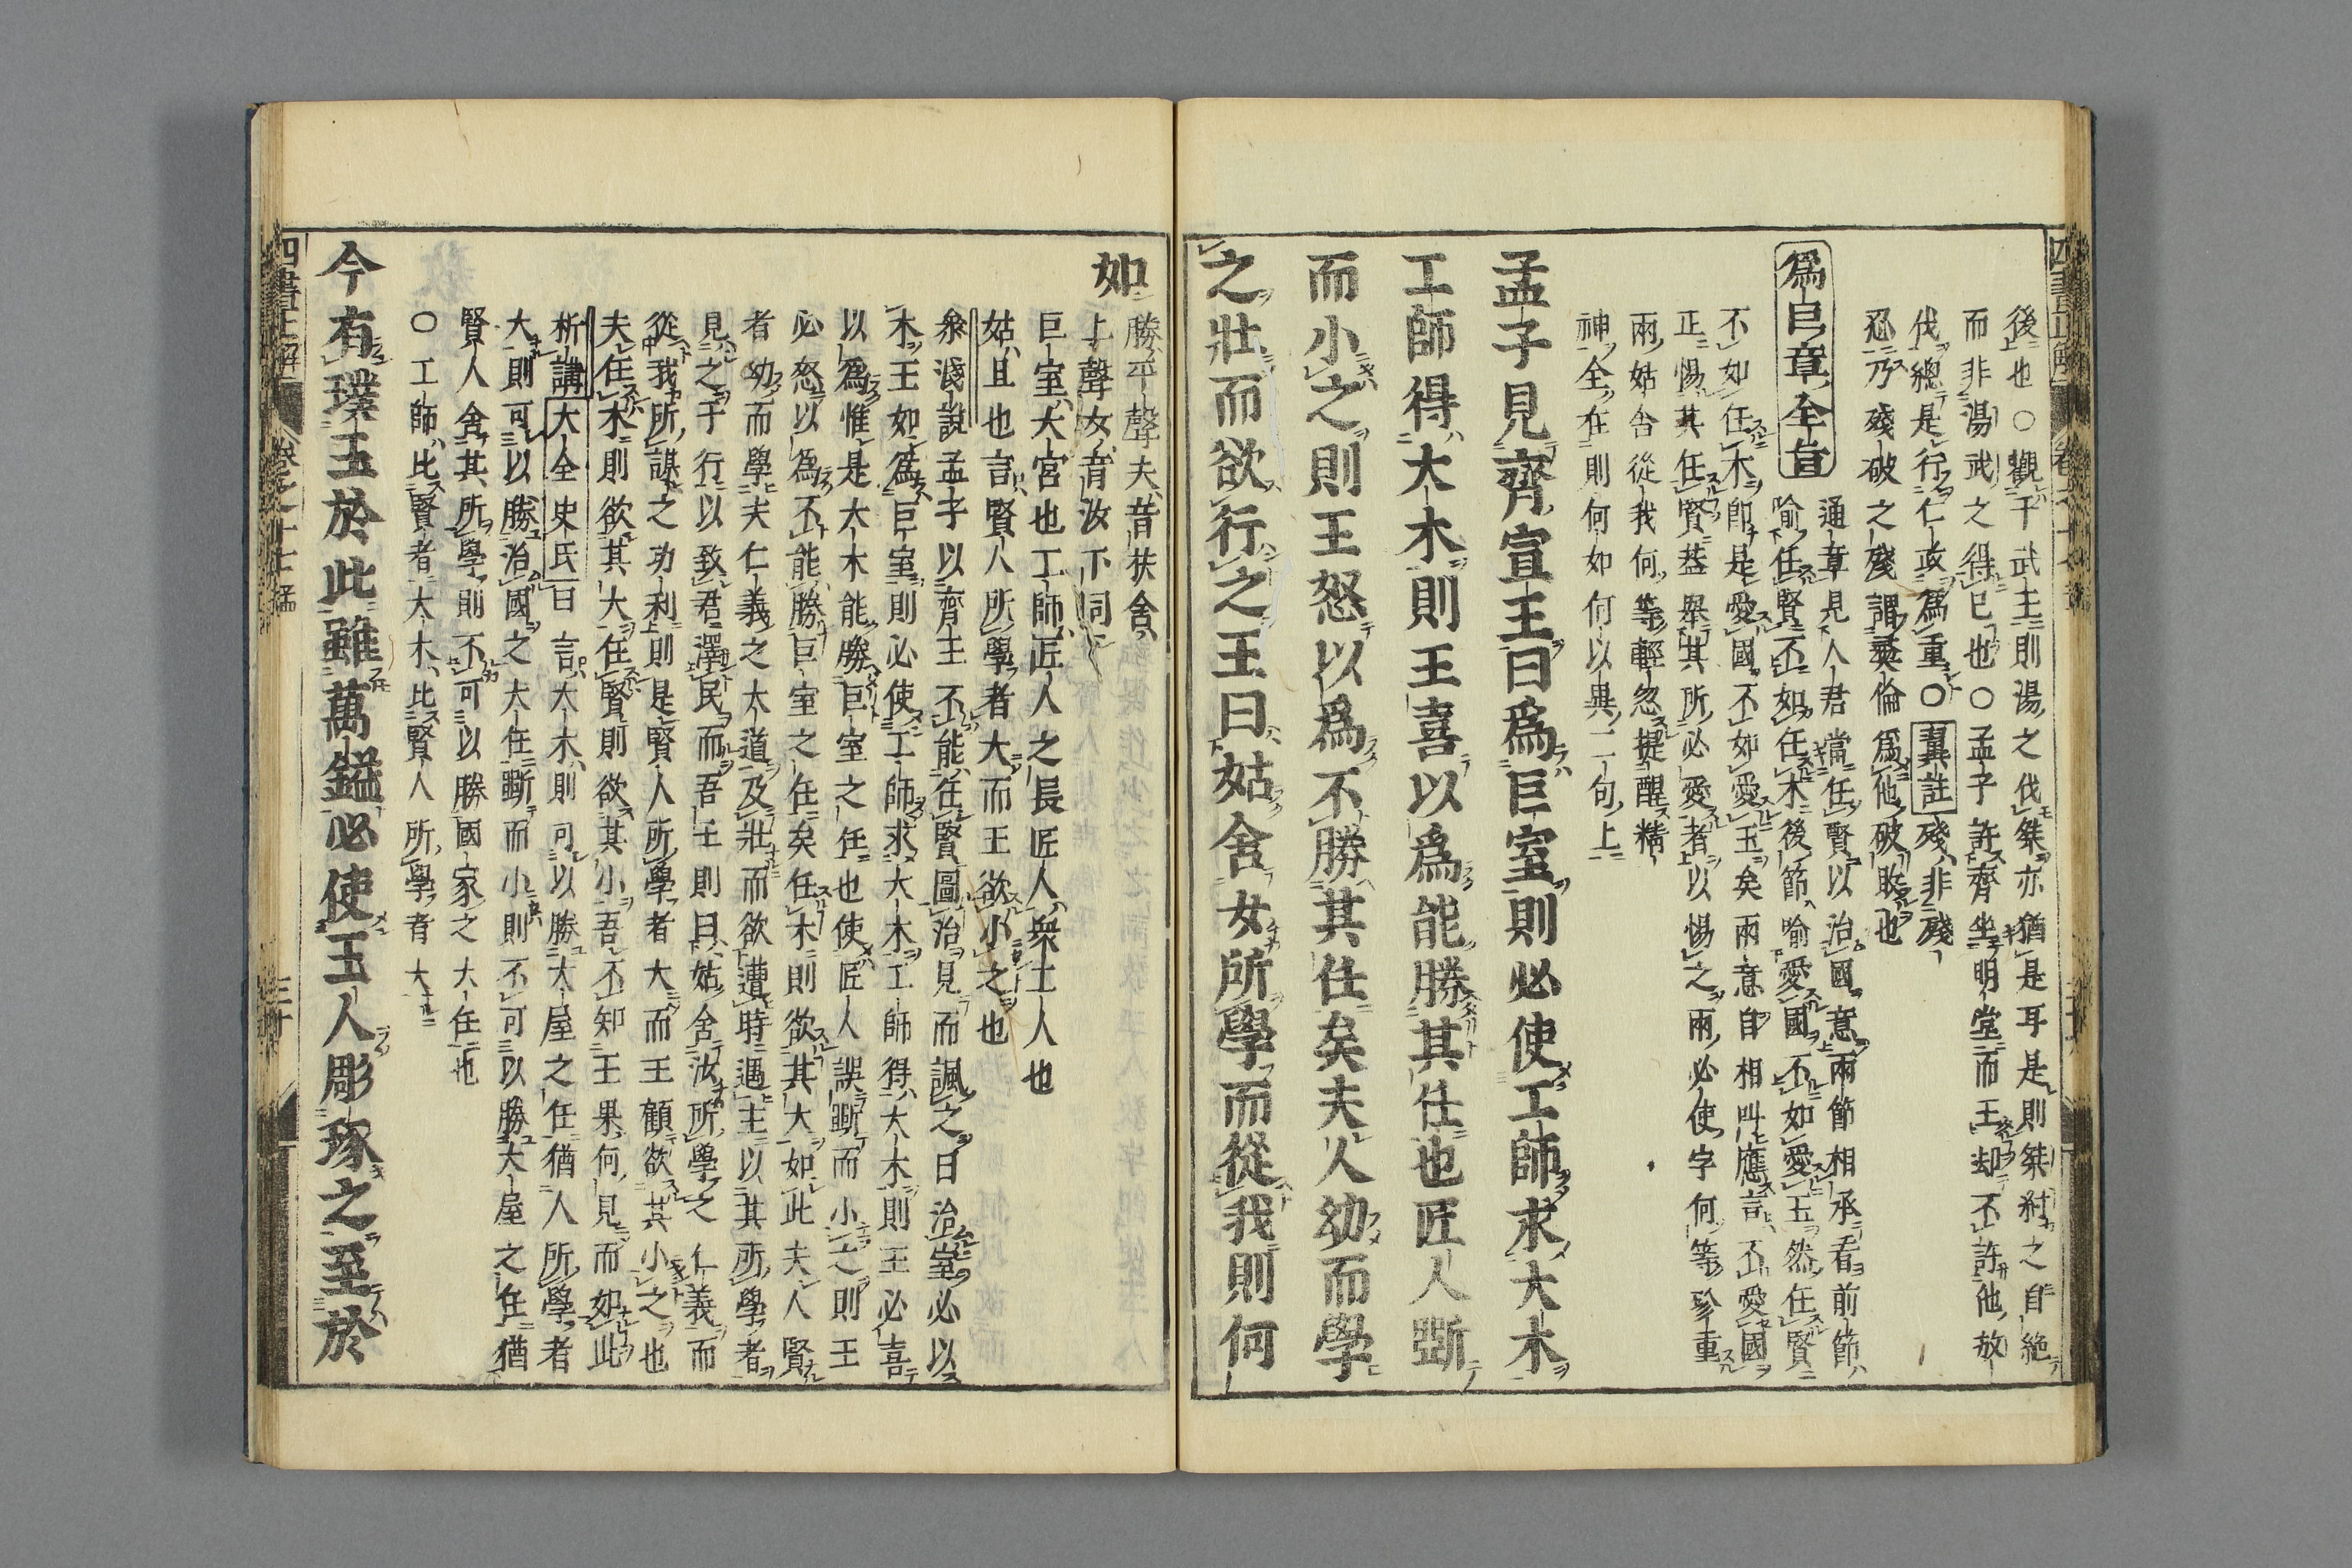 後也○觀于武王則湯之伐桀亦猶是耳是則桀紂之自絶
而非湯武之得已也○孟子許齊坐明堂而王却不許他放
伐總是行仁政爲重○翼註殘非殘
忍乃殘破之殘謂彛倫爲他破敗也
爲巨章全旨
通章見人君當任賢以治國意兩節相承看前節
喻任賢不如任木後節喻愛國不如愛玉然任賢
不如任木即是愛國不如愛玉矣兩意自相叫應言不愛國
正惕其任賢葢舉其所必愛者以惕之兩必使字何等珍重
兩姑舍從我何等輕忽提醒精
神全在則何如何以異二句上
孟子見齊宣王曰爲巨室則必使工師求大木
工師得大木則王喜以爲能勝其任也匠人斲
而小之則王怒以爲不勝其任矣夫人幼而學
之壯而欲行之王曰姑舍女所學而從我則何
如
勝平聲夫音扶舍
上聲女音汝下同
巨室大宮也工師匠人之長匠人衆工人也
姑且也言賢人所學者大而王欲小之也
衆淺說孟子以齊王不能任賢圖治見而諷之曰治室必以
木王如爲巨室則必使工師求大木工師得大木則王必喜
以爲惟是大木能勝巨室之任也使匠人誤斲而小之則王
必怒以爲不能勝巨室之任矣任木則欲其大如此夫人賢
者幼而學夫仁義之大道及壯而欲遭時遇主以其所學者
見之于行以致君澤民而吾王則曰姑舍汝所學之仁義而
從我所謀之功利則是賢人所學者大而王顧欲其小之也
夫任木則欲其大任賢則欲其小吾不知王果何見而如此
析講大全史氏曰言大木則可以勝大屋之任猶人所學者
大則可以勝治國之大任斲而小則不可以勝大屋之任猶
賢人舍其所學則不可以勝國家之大任也
○工師比賢者大木比賢人所學者大
今有璞玉於此雖萬鎰必使玉人彫琢之至於
四書正解
卷之十七孟
三十